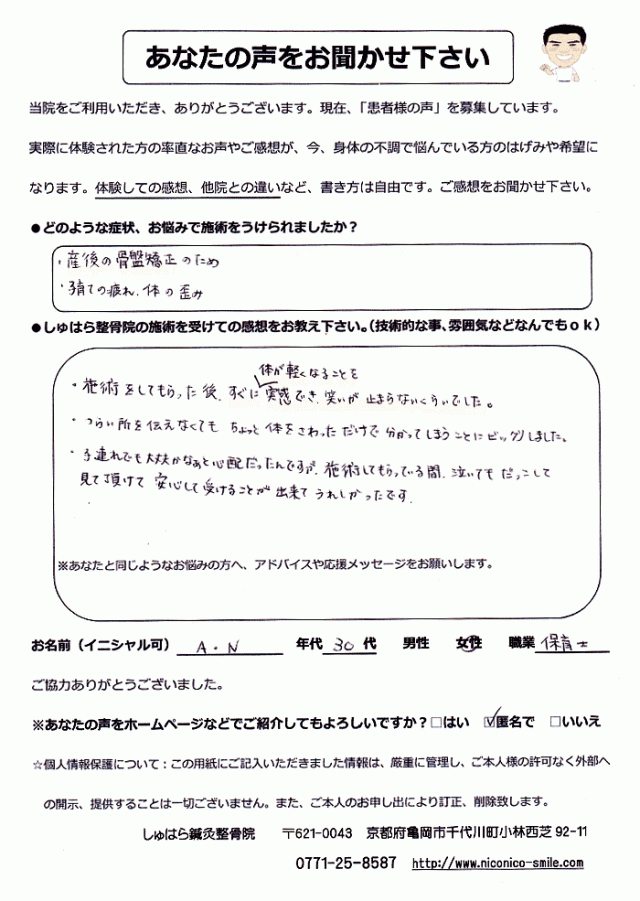 あなたの声をお聞かせ下さい
当院をご利用いただき、ありがとうございます。現在、「患者様の声」を募集しています。
実際に体験された方の率直なお声やご感想が、今、身体の不調で悩んでいる方のはげみや希望に
なります。体験しての感想、他院との違いなど、書き方は自由です。ご感想をお聞かせ下さい。
●どのような症状、お悩みで施術をうけられましたか?
・産後の骨盤矯正のため
・子育ての疲れ、体の歪み
●しゅはら整骨院の施術を受けての感想をお教え下さい。(技術的な事、雰囲気などなんでもok)
体が軽くなることを
・施術をしてもらった後、すぐに実感でき、笑いが止まらないくらいでした。
・つらい所を伝えなくても ちょっと体をさわっただけで分かってしまうことにビックリしました。
・子連れでも大丈夫かなぁと心配だったんですが、施術してもらっている間、泣いてもだっこして
見て頂けて 安心して受けることが出来てうれしかったです。
※あなたと同じようなお悩みの方へ、アドバイスや応援メッセージをお願いします。
お名前(イニシャル可) A・N 年代 30 代 男性 女性 職業 保育士
ご協力ありがとうございました。
※あなたの声をホームページなどでご紹介してもよろしいですか?□はい ☑匿名で □いいえ
☆個人情報保護について:この用紙にご記入いただきました情報は、厳重に管理し、ご本人様の許可なく外部へ
の開示、提供することは一切ございません。また、ご本人のお申し出により訂正、削除致します。
しゅはら鍼灸整骨院 〒621-0043 京都府亀岡市千代川町小林西芝 92-11
0771-25-8587 http://www.niconico-smile.com